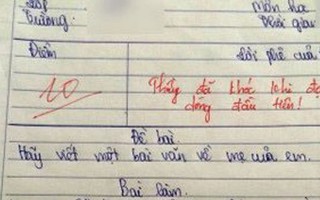 Lớp
Trường:
Môn học
Thời gian
Điểm
Lời phê của
10
Thầy đã khóc khi đọ
dòng đầu tiên!
Đề bài
Hãy viết một bài văn về mẹ của em.
Bài làm.